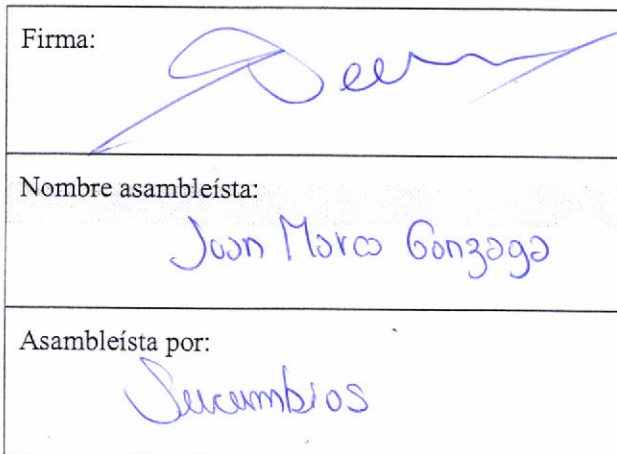 Firma:
Nombre asambleísta:
Juan Marco Gonzaga
Asambleísta por:
Sucumbios